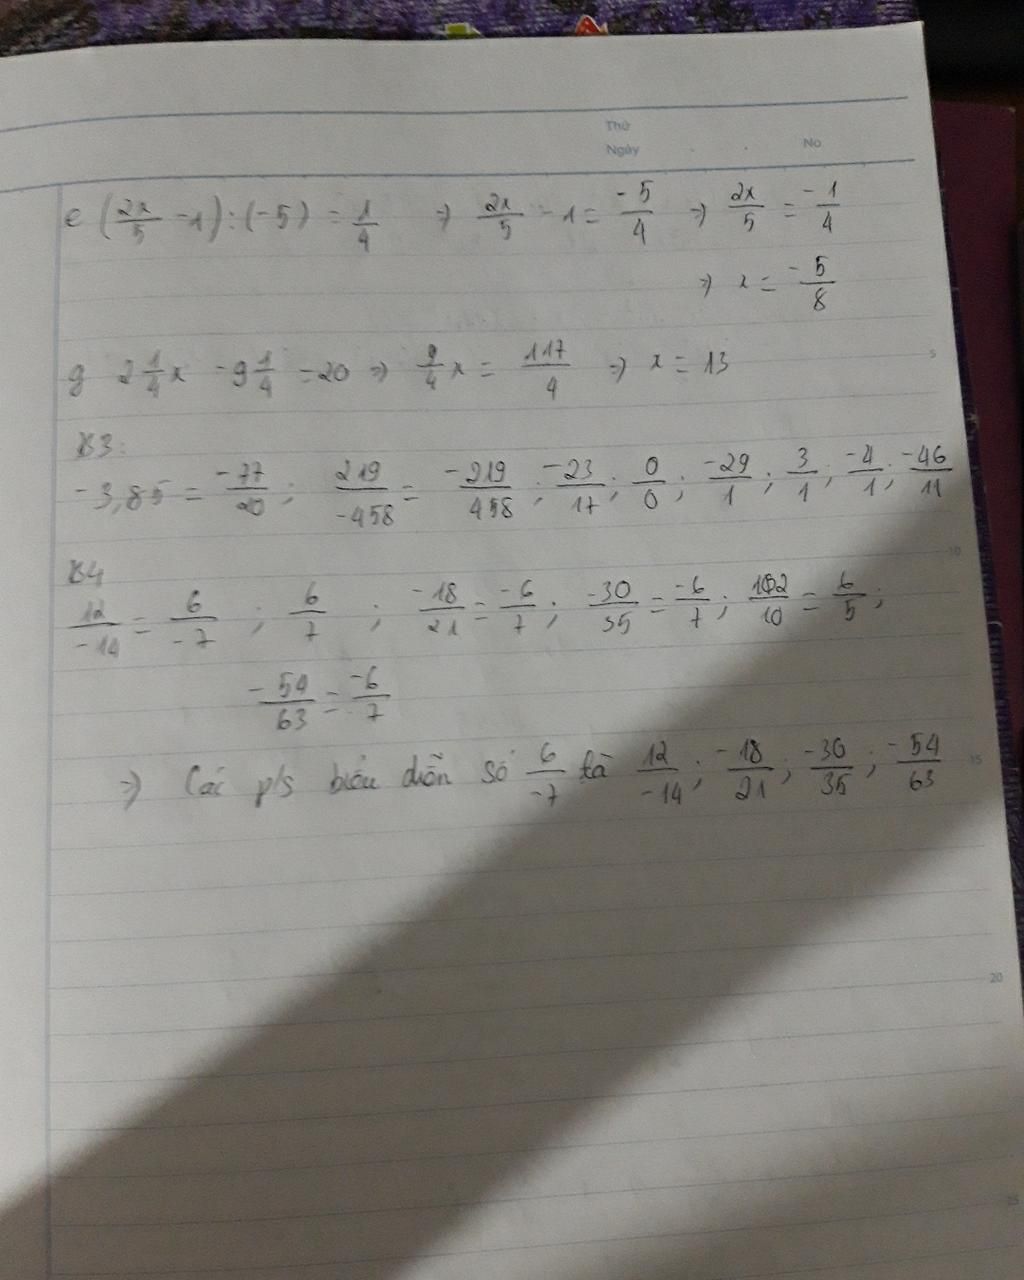 Thứ
Ngày No
e (2x/5 - 1) : (-5) = 1/4 => 2x/5 - 1 = -5/4 => 2x/5 = -1/4
=> x = -5/8
g 2 1/4 x - 9 1/4 = 20 => 9/4 x = 117/4 => x = 13
5
B3:
-3,85 = -77/20 ; 219/-458 = -219/458 ; -23/17 ; 0/0 ; -29/1 ; 3/1 ; -4/1 ; -46/11
10
B4
12/-14 = 6/-7 ; 6/7 ; -18/21 = -6/7 ; -30/35 = -6/7 ; 12/10 = 6/5 ;
-54/63 = -6/7
=> Các p/s biểu diễn số 6/-7 là 12/-14 ; -18/21 ; -30/35 ; -54/63
15
20
25